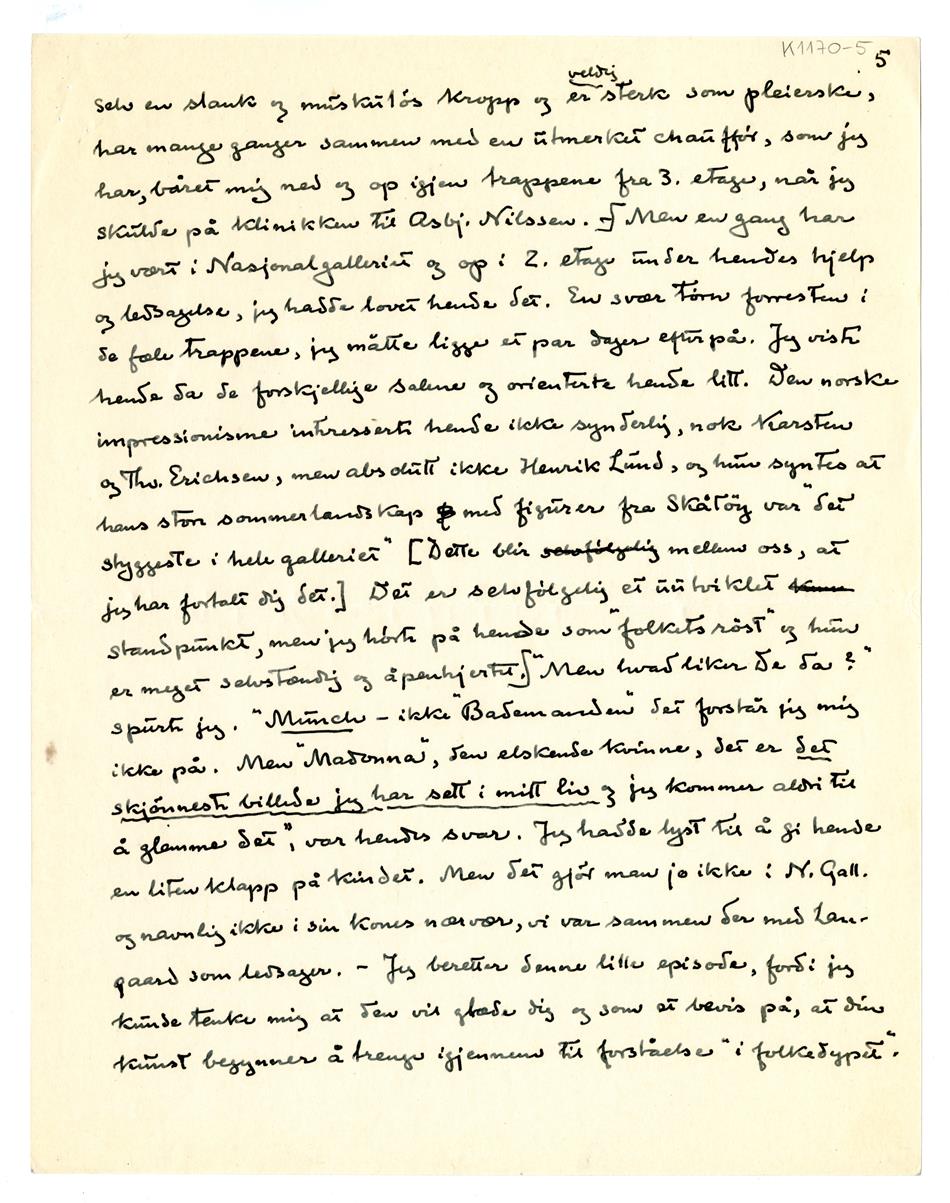 K1170-5
5
veldig
selv en slank og muskuløs kropp og er sterk som pleierske,
har mange ganger sammen med en utmerket chauffør, som jeg
har, båret mig ned og op igjen trappene fra 3. etage, når jeg
skulde på klinikken til Asbj. Nilssen. –] Men en gang har
jeg vært i Nasjonalgalleriet og op i 2. etage under hendes hjelp
og ledsagelse, jeg hadde lovet hende det. En svær törn forresten i
de fæle trappene, jeg måtte ligge et par dager efterpå. Jeg viste
hende da de forskjellige salene og orienterte hende litt. Den norske
impressionisme interesserte hende ikke synderlig, nok Karsten
og Thv. Erichsen, men absolutt ikke Henrik Lund, og hun syntes at
hans store sommerlandskap med figurer fra Skåtöy var "det
styggeste i hele galleriet" [Dette blir selvfölgelig mellem oss, at
jeg har fortalt dig det.] Det er selvfölgelig et uutviklet
standpunkt, men jeg hörte på hende som "folkets röst" og hun
er meget selvstændig og åpenhjertet.] "Men hvad liker De da?"
spurte jeg. "Munch – ikke "Bademanden" det forstår jeg mig
ikke på. Men "Madonna", den elskende kvinne, det er det
skjönneste billede jeg har sett i mitt liv og jeg kommer aldri til
å glemme det", var hendes svar. Jeg hadde lyst til å gi hende
en liten klapp på kindet. Men det gjör man jo ikke i N. Gall.
og navnlig ikke i sin kones nærvær, vi var sammen der med Lan-
gaard som ledsager. – Jeg beretter denne lille episode, fordi jeg
kunde tenke mig at den vil glæde dig og som et bevis på, at din
kunst begynner å trenge igjennem til forståelse "i folkedypet".